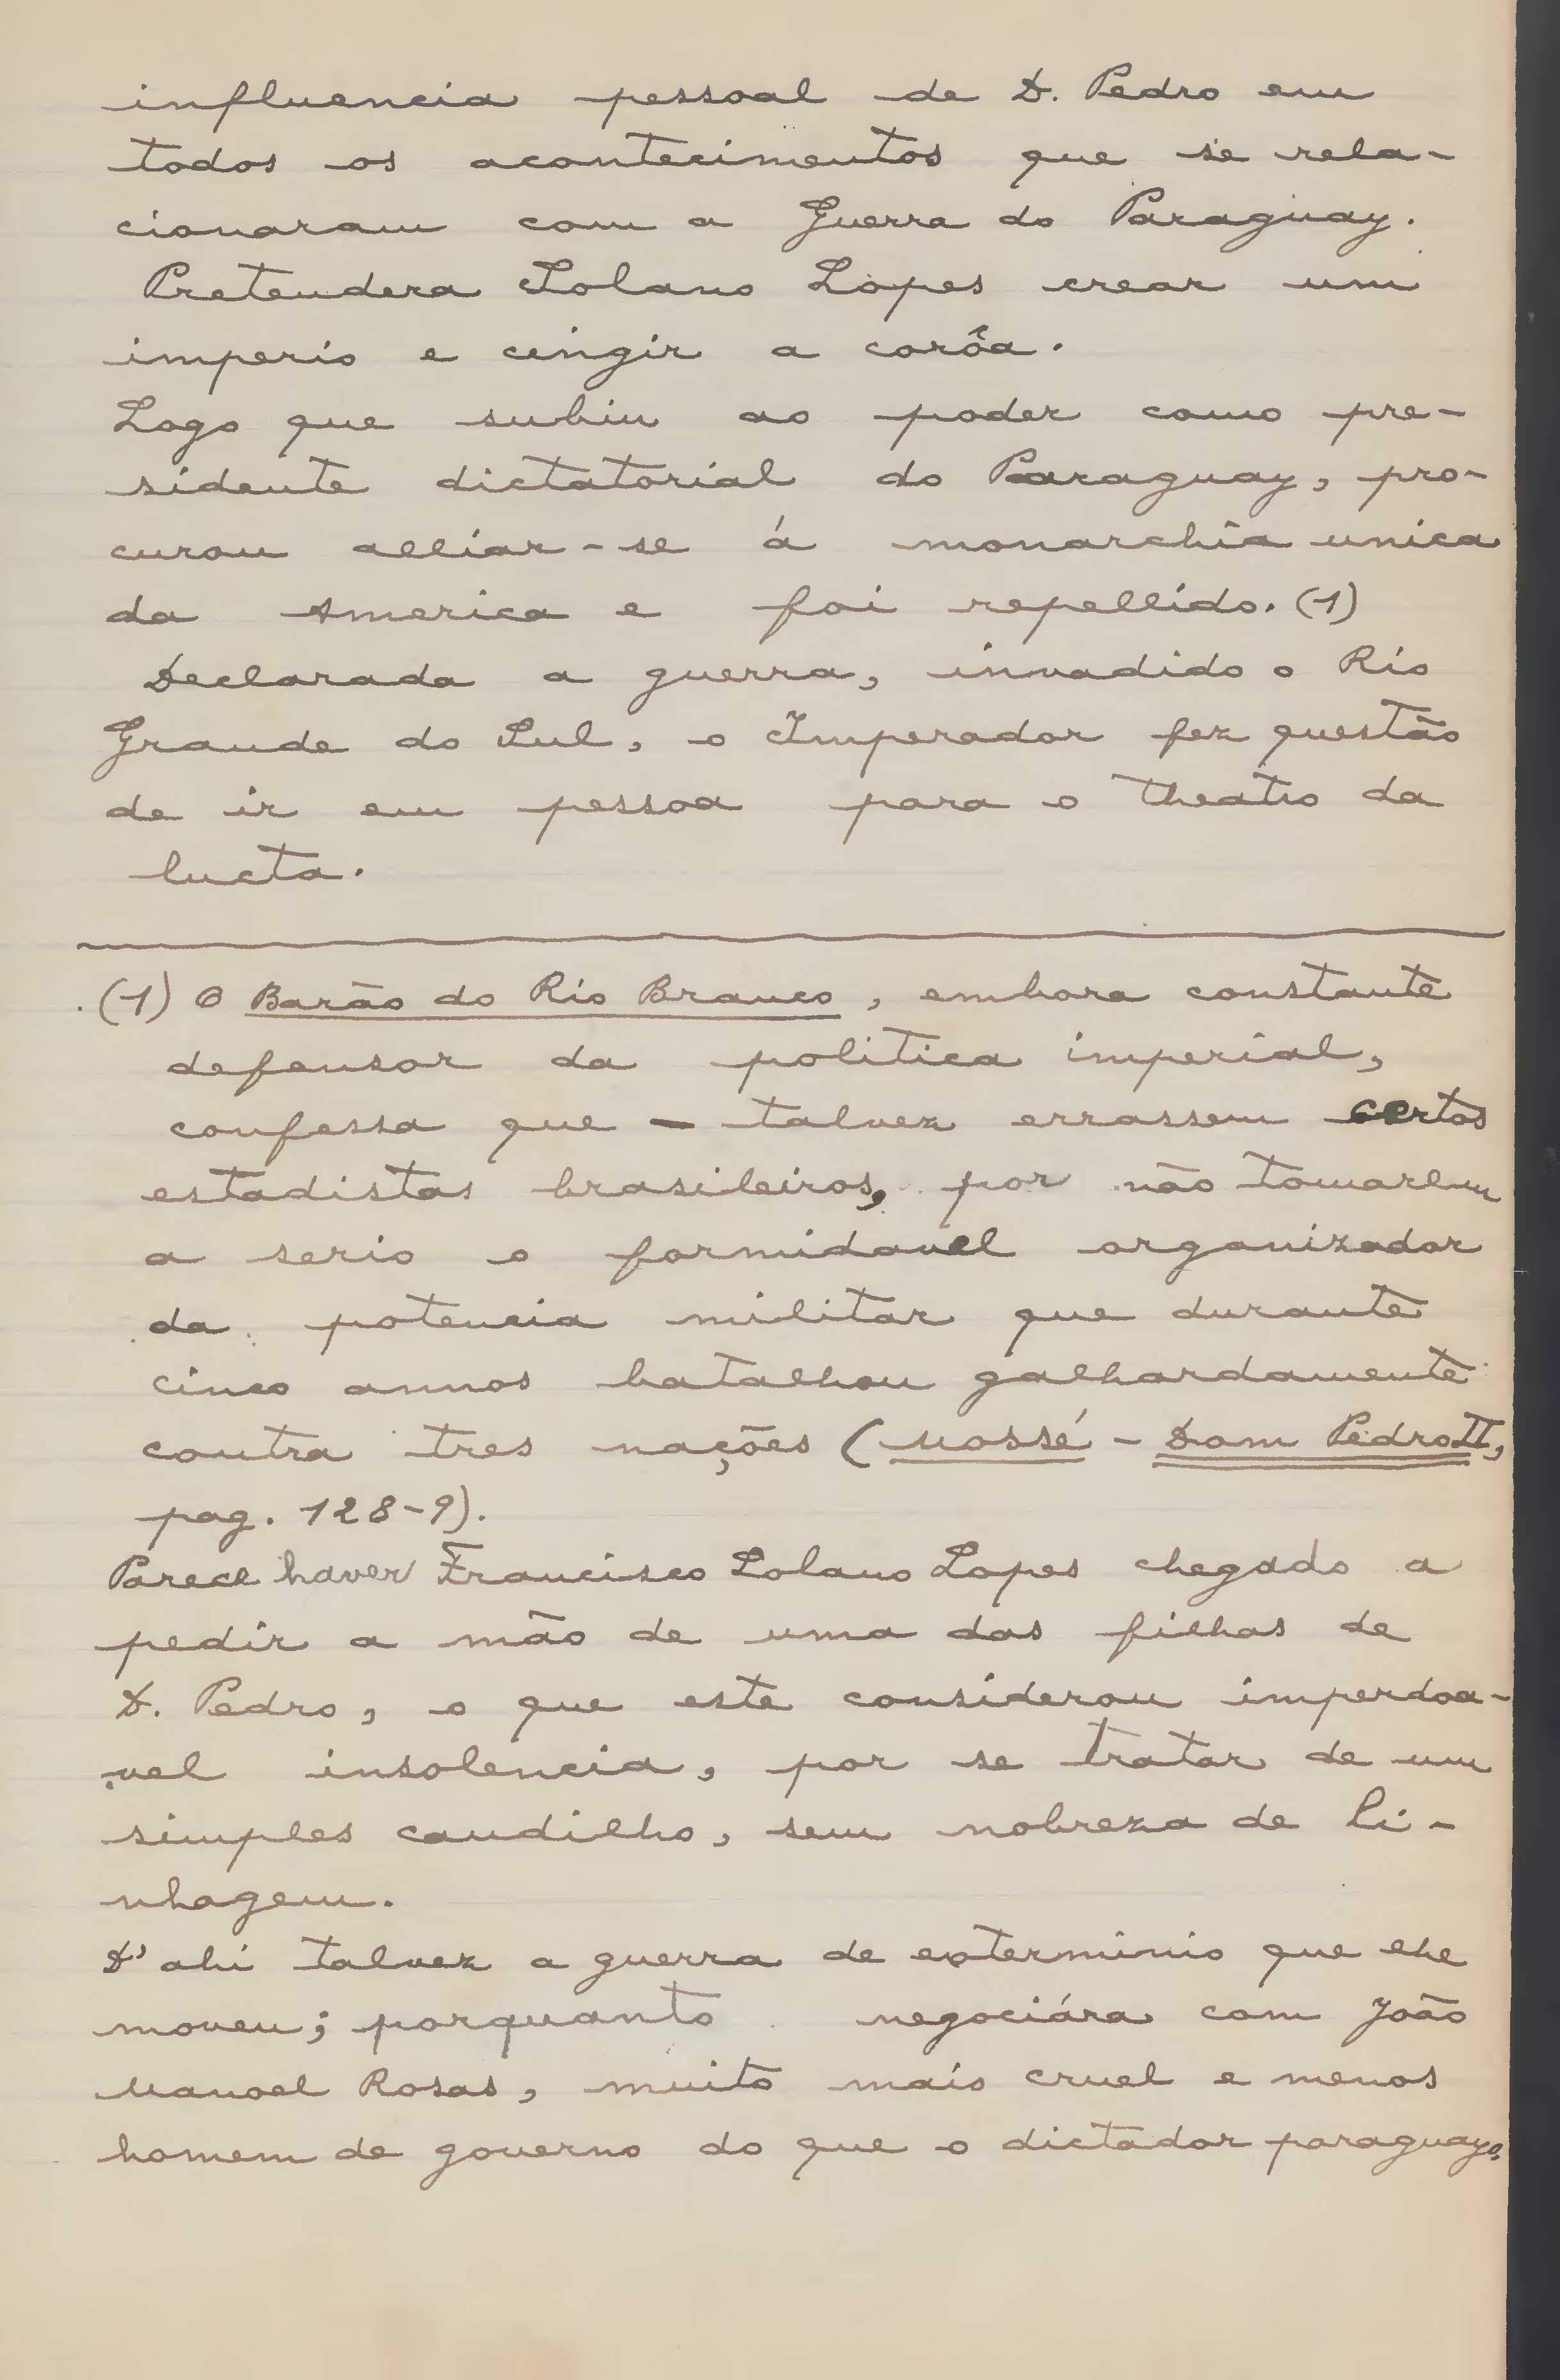 influencia pessoal de D. Pedro em
todos os acontecimentos que se rela-
cionaram com a Guerra do Paraguay.
Pretendera Solano Lopes crear um
imperio e cingir a corôa.
Logo que subiu ao poder como pre-
sidente dictatorial do Paraguay, pro-
curou alliar-se á monarchia unica
da America e foi repellido. (1)
Declarada a guerra, invadido o Rio
Grande do Sul, o Imperador fez questão
de ir em pessoa para o theatro da
lucta.
(1) O Barão do Rio Branco, embora constante
defensor da politica imperial,
confessa que - talvez errassem certos
estadistas brasileiros, por não tomarem
a serio o formidavel organizador
da potencia militar que durante
cinco annos batalhou galhardamente
contra tres nações (Mossé - Dom Pedro II,
pag. 128-9).
Parece haver Francisco Solano Lopes chegado a
pedir a mão de uma das filhas de
D. Pedro, o que este considerou imperdoa-
vel insolencia, por se tratar de um
simples caudilho, sem nobreza de li-
nhagem.
D'ahi talvez a guerra de exterminio que lhe
moveu; porquanto negociára com João
Manoel Rosas, muito mais cruel e menos
homem de governo do que o dictador paraguayo.